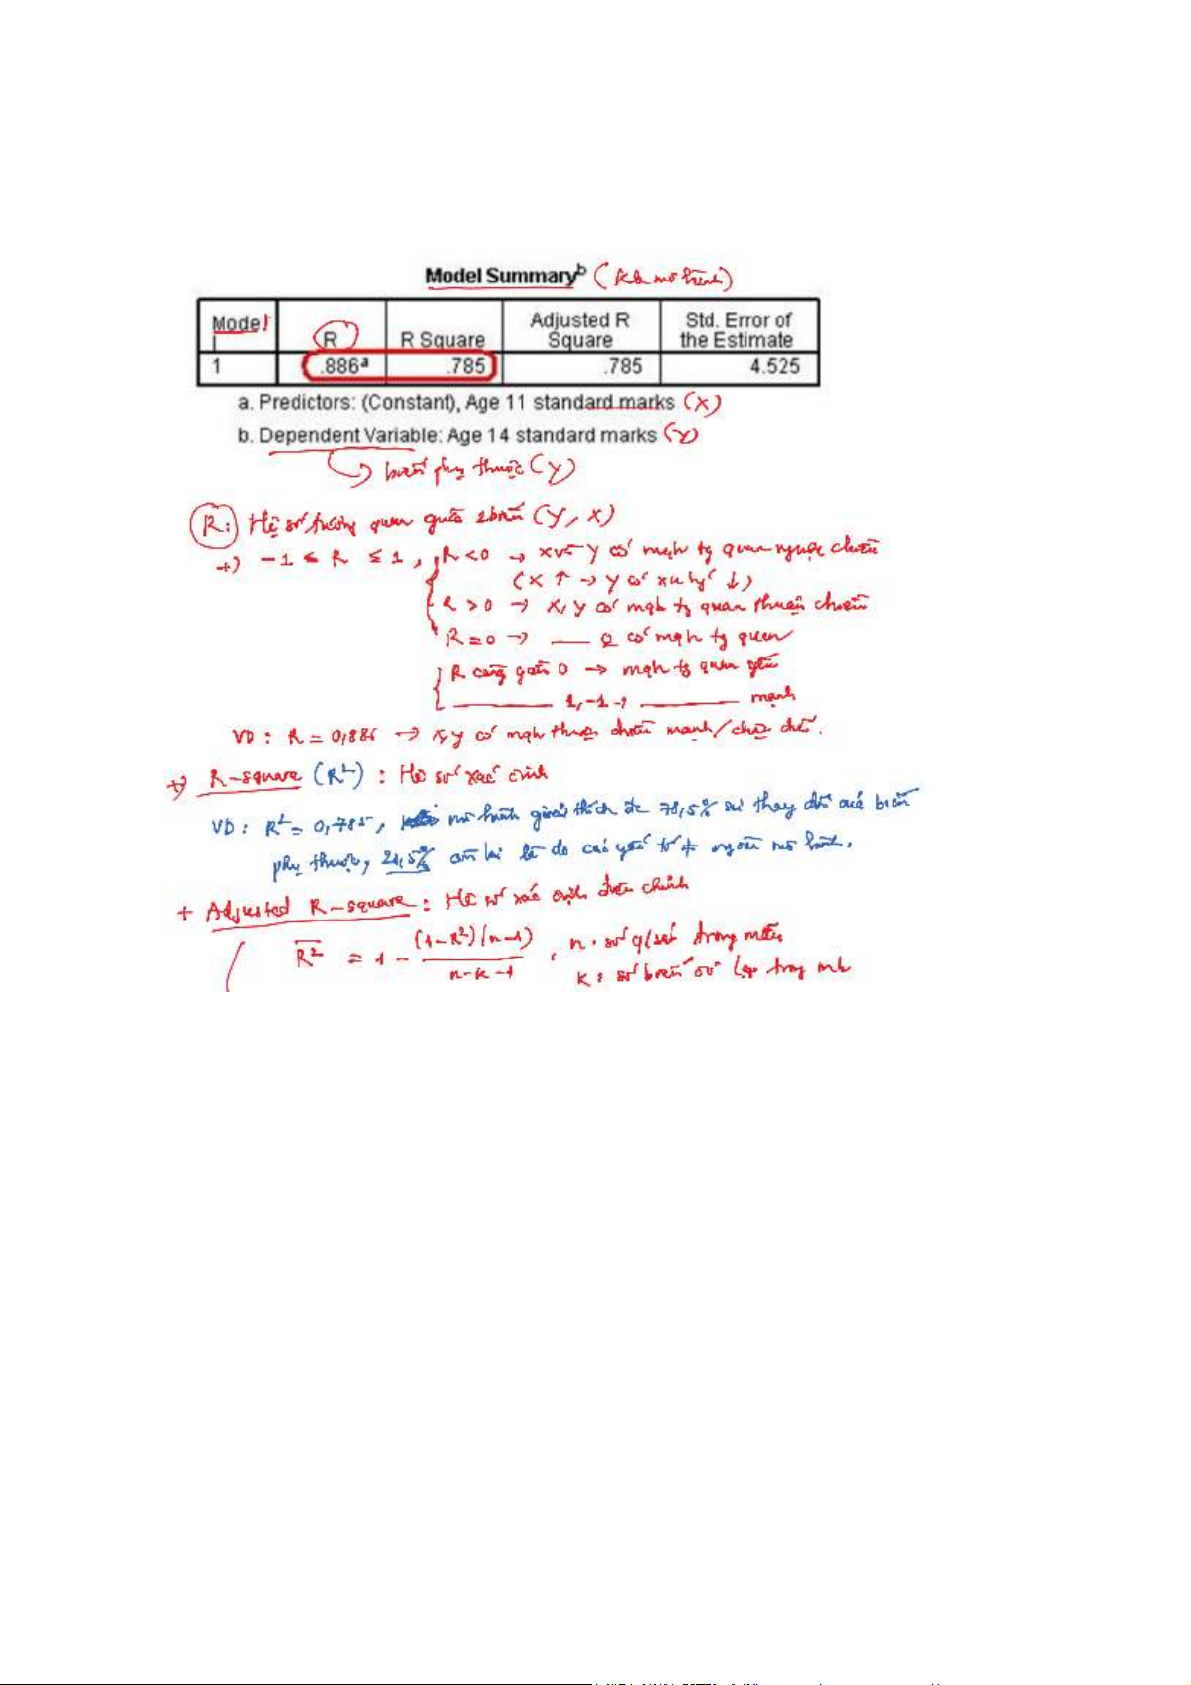 Model Summaryb (kq mô hình)
Model R R Square Adjusted R Square Std. Error of the Estimate
1 .886a .785 .785 4.525
a. Predictors: (Constant), Age 11 standard marks (X)
b. Dependent Variable: Age 14 standard marks (Y)
biến phụ thuộc (Y)
R: Hệ số tương quan giữa 2 biến (Y, X)
+) -1 ≤ R ≤ 1, R < 0 → X và Y có mqh tg quan ngược chiều
(X ↑ → Y có xu hg ↓)
R > 0 → X, Y có mqh tg quan thuận chiều
R = 0 → — có mqh tg quan
R càng gần 0 → mqh tg quan yếu
— 1, -1 → — mạnh
VD: R = 0,886 → X, Y có mqh thuận chiều mạnh/chặt chẽ.
+) R-square (R²): Hệ số xác định
VD: R² = 0,785, mô hình giải thích đc 78,5% sự thay đổi của biến
phụ thuộc, 21,5% còn lại là do các yếu tố ≠ ngoài mô hình.
+ Adjusted R-square: Hệ số xác định điều chỉnh
R² = 1 - (1-R²)(n-1) / n-k-1, n: số q/sát trong mẫu
k: số biến độc lập trong mh